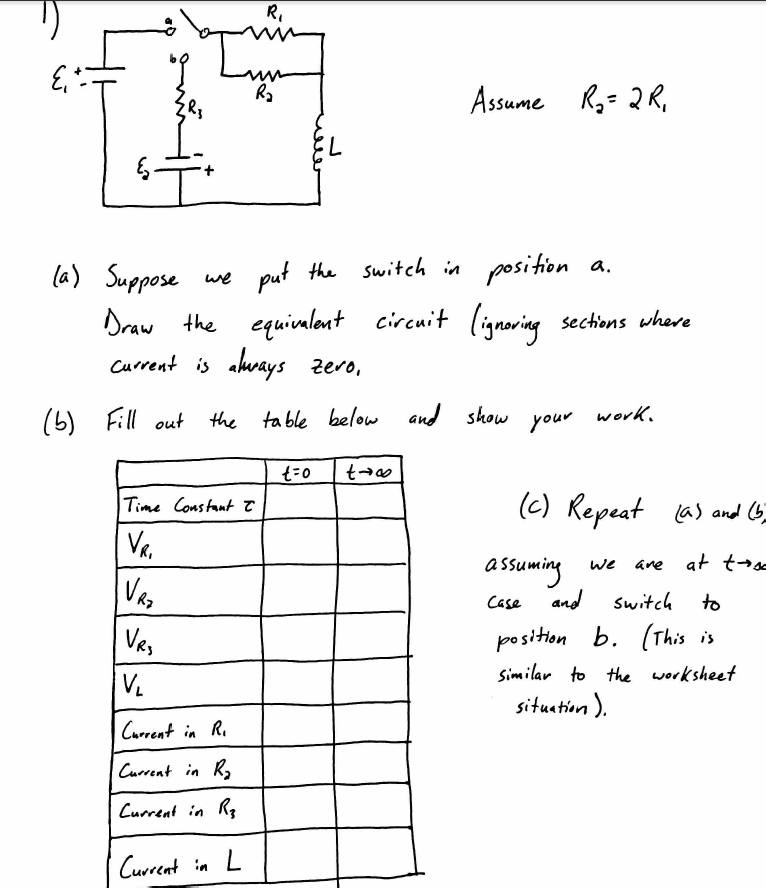 1)
a
R₁
b
ℰ₁
+
-
R₂
R₃
L
ℰ₂
-
+
Assume R₂ = 2R₁
(a) Suppose we put the switch in position a.
Draw the equivalent circuit (ignoring sections where
current is always zero,
(b) Fill out the table below and show your work.
t=0 t→∞
Time Constant τ
V_R₁
V_R₂
V_R₃
V_L
Current in R₁
Current in R₂
Current in R₃
Current in L
(c) Repeat (a) and (b)
assuming we are at t→∞
case and switch to
position b. (This is
similar to the worksheet
situation).